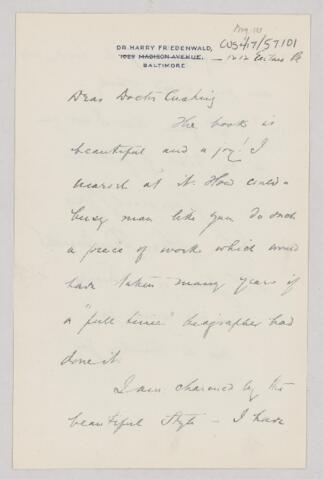 DR. HARRY FRIEDENWALD,
CUS417/57101
1029 MADISON AVENUE,
1212 Eutaw Pl
BALTIMORE
Dear Doctor Cushing
The book is
beautiful and a joy! I
at it. How could a
busy man like you do such
a piece of work which would
have taken many years if
a "full time" biographer had
done it.
I am charmed by the
beautiful style – I have